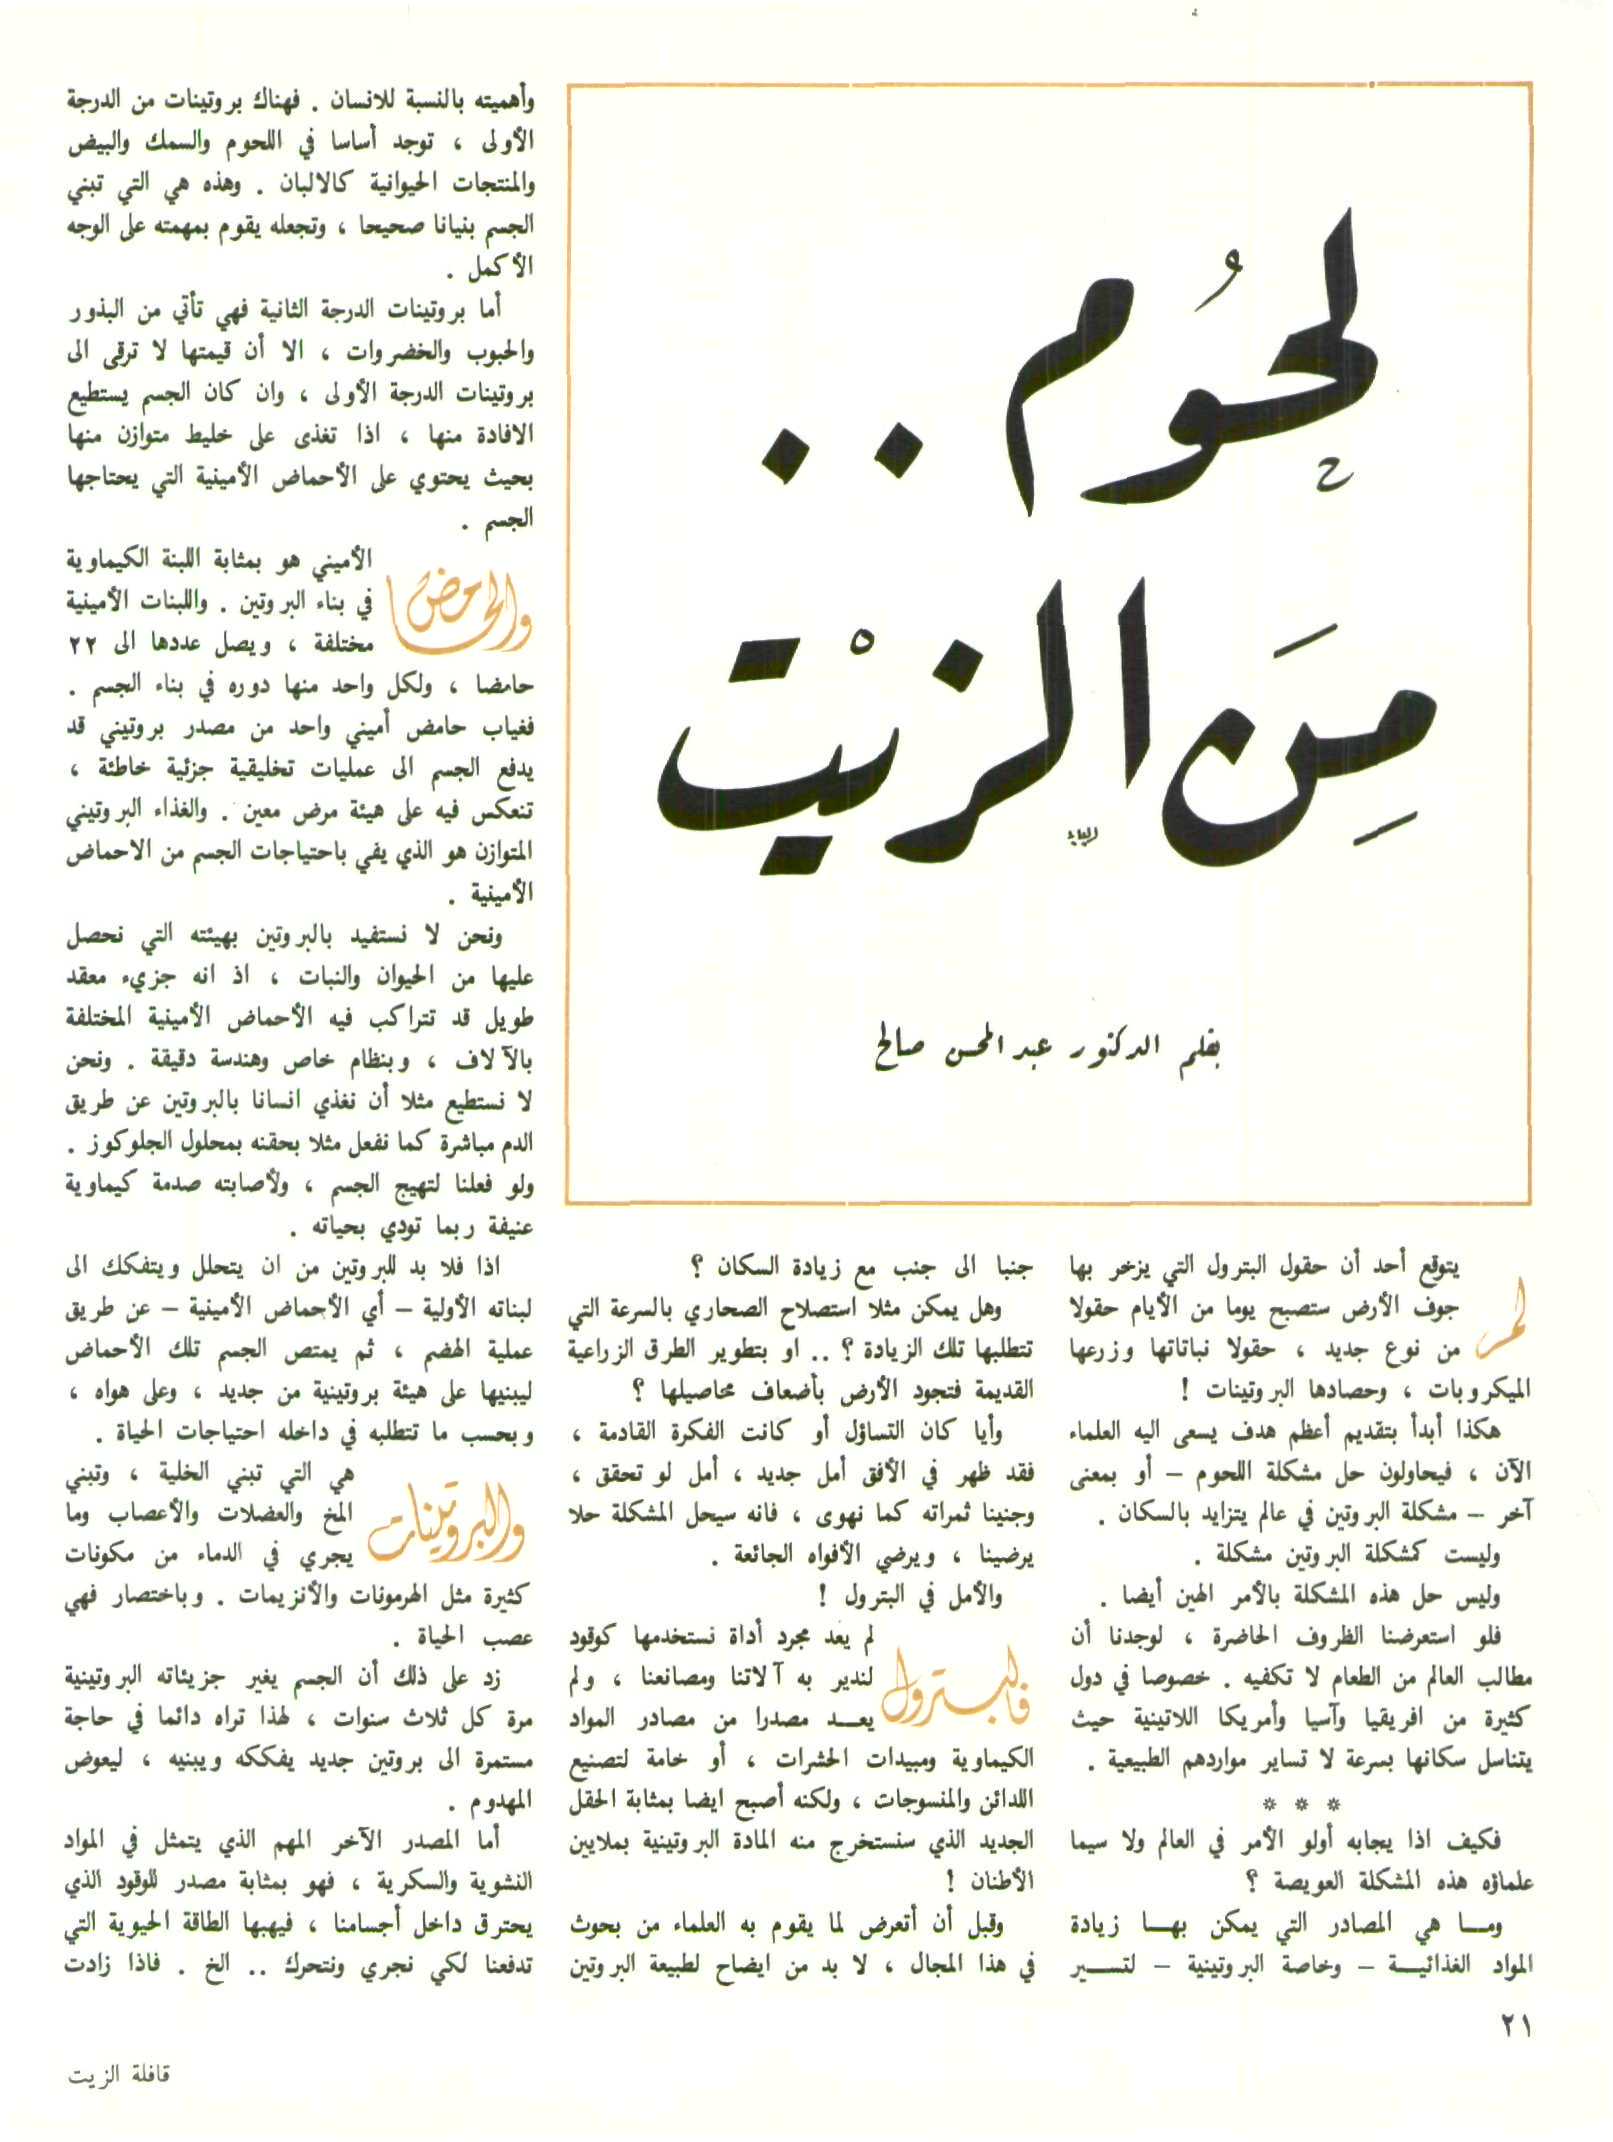 لحُوم ..
مِنَ الزيْت
بقلم الدكتور عبد المحسن صالح
لم يتوقع أحد أن حقول البترول التي يزخر بها
جوف الأرض ستصبح يوما من الأيام حقولا
من نوع جديد ، حقولا نباتاتها وزرعها
الميكروبات ، وحصادها البروتينات !
هكذا أبدأ بتقديم أعظم هدف يسعى اليه العلماء
الآن ، فيحاولون حل مشكلة اللحوم – أو بمعنى
آخر – مشكلة البروتين في عالم يتزايد بالسكان .
وليست كمشكلة البروتين مشكلة .
وليس حل هذه المشكلة بالأمر الهين أيضا .
فلو استعرضنا الظروف الحاضرة ، لوجدنا أن
مطالب العالم من الطعام لا تكفيه . خصوصا في دول
كثيرة من افريقيا وآسيا وأمريكا اللاتينية حيث
يتناسل سكانها بسرعة لا تساير مواردهم الطبيعية .
* * *
فكيف اذا يجابه أولو الأمر في العالم ولا سيما
علماؤه هذه المشكلة العويصة ؟
وما هي المصادر التي يمكن بها زيادة
المواد الغذائية – وخاصة البروتينية – لتسير
جنبا الى جنب مع زيادة السكان ؟
وهل يمكن مثلا استصلاح الصحاري بالسرعة التي
تتطلبها تلك الزيادة ؟ .. او بتطوير الطرق الزراعية
القديمة فتجود الأرض بأضعاف محاصيلها ؟
وأيا كان التساؤل أو كانت الفكرة القادمة ،
فقد ظهر في الأفق أمل جديد ، أمل لو تحقق ،
وجنينا ثمراته كما نهوى ، فانه سيحل المشكلة حلا
يرضينا ، ويرضي الأفواه الجائعة .
والأمل في البترول !
فالبترول لم يعد مجرد أداة نستخدمها كوقود
لندير به آلاتنا ومصانعنا ، ولم
يعد مصدرا من مصادر المواد
الكيماوية ومبيدات الحشرات ، أو خامة لتصنيع
اللدائن والمنسوجات ، ولكنه أصبح ايضا بمثابة الحقل
الجديد الذي سنستخرج منه المادة البروتينية بملايين
الأطنان !
وقبل أن أتعرض لما يقوم به العلماء من بحوث
في هذا المجال ، لا بد من ايضاح لطبيعة البروتين
وأهميته بالنسبة للانسان . فهناك بروتينات من الدرجة
الأولى ، توجد أساسا في اللحوم والسمك والبيض
والمنتجات الحيوانية كالالبان . وهذه هي التي تبني
الجسم بنيانا صحيحا ، وتجعله يقوم بمهمته على الوجه
الأكمل .
أما بروتينات الدرجة الثانية فهي تأتي من البذور
والحبوب والخضروات ، الا أن قيمتها لا ترقى الى
بروتينات الدرجة الأولى ، وان كان الجسم يستطيع
الافادة منها ، اذا تغذى على خليط متوازن منها
بحيث يحتوي على الأحماض الأمينية التي يحتاجها
الجسم .
والحامض الأميني هو بمثابة اللبنة الكيماوية
في بناء البروتين . واللبنات الأمينية
مختلفة ، ويصل عددها الى ٢٢
حامضا ، ولكل واحد منها دوره في بناء الجسم .
فغياب حامض أميني واحد من مصدر بروتيني قد
يدفع الجسم الى عمليات تخليقية جزئية خاطئة ،
تنعكس فيه على هيئة مرض معين . والغذاء البروتيني
المتوازن هو الذي يفي باحتياجات الجسم من الاحماض
الأمينية .
ونحن لا نستفيد بالبروتين بهيئته التي نحصل
عليها من الحيوان والنبات ، اذ انه جزيء معقد
طويل قد تتراكب فيه الأحماض الأمينية المختلفة
بالآلاف ، وبنظام خاص وهندسة دقيقة . ونحن
لا نستطيع مثلا أن نغذي انسانا بالبروتين عن طريق
الدم مباشرة كما نفعل مثلا بحقنه بمحلول الجلوكوز .
ولو فعلنا لتهيج الجسم ، ولأصابته صدمة كيماوية
عنيفة ربما تودي بحياته .
اذا فلا بد للبروتين من ان يتحلل ويتفكك الى
لبناته الأولية – أي الأحماض الأمينية – عن طريق
عملية الهضم ، ثم يمتص الجسم تلك الأحماض
ليبنيها على هيئة بروتينية من جديد ، وعلى هواه ،
وبحسب ما تتطلبه في داخله احتياجات الحياة .
والبروتينات هي التي تبني الخلية ، وتبني
المخ والعضلات والأعصاب وما
يجري في الدماء من مكونات
كثيرة مثل الهرمونات والأنزيمات . وباختصار فهي
عصب الحياة .
زد على ذلك أن الجسم يغير جزيئاته البروتينية
مرة كل ثلاث سنوات ، لهذا تراه دائما في حاجة
مستمرة الى بروتين جديد يفككه ويبنيه ، ليعوض
المهدوم .
أما المصدر الآخر المهم الذي يتمثل في المواد
النشوية والسكرية ، فهو بمثابة مصدر للوقود الذي
يحترق داخل أجسامنا ، فيهبها الطاقة الحيوية التي
تدفعنا لكي نجري ونتحرك .. الخ . فاذا زادت
٢١
قافلة الزيت